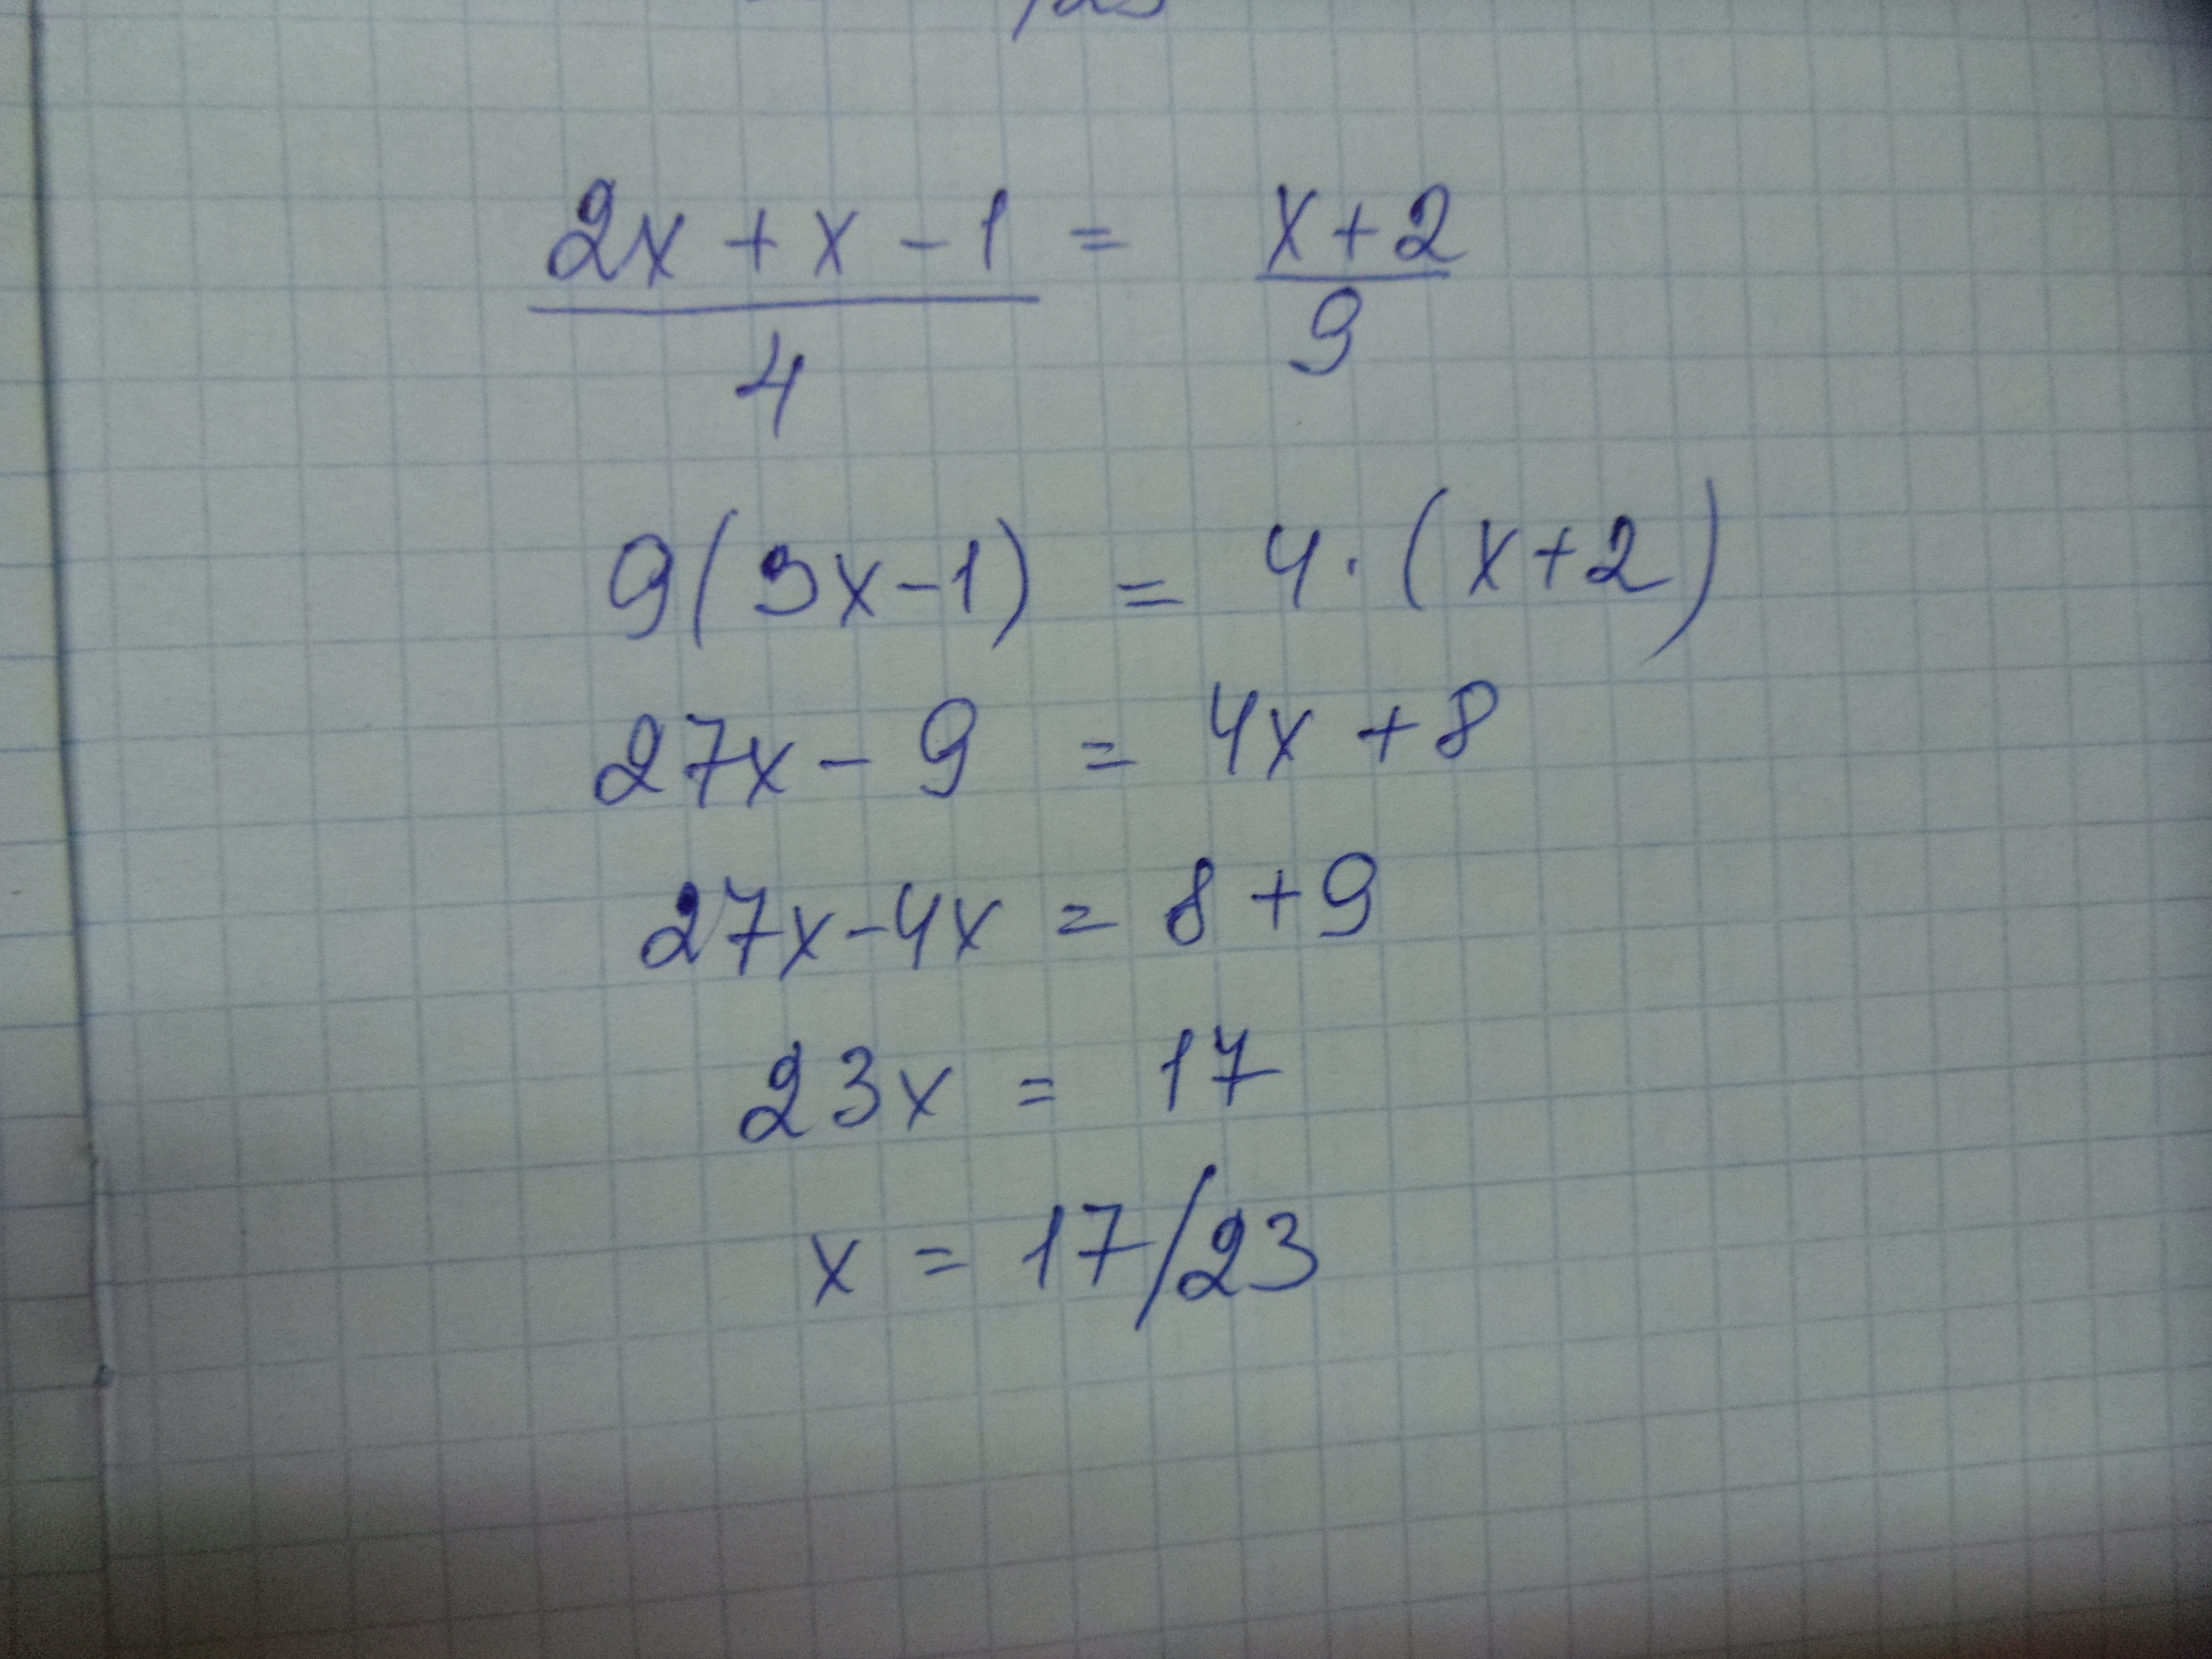 2x + x - 1 = x + 2
4 9
9(3x - 1) = 4 · (x + 2)
27x - 9 = 4x + 8
27x - 4x = 8 + 9
23x = 17
x = 17/23